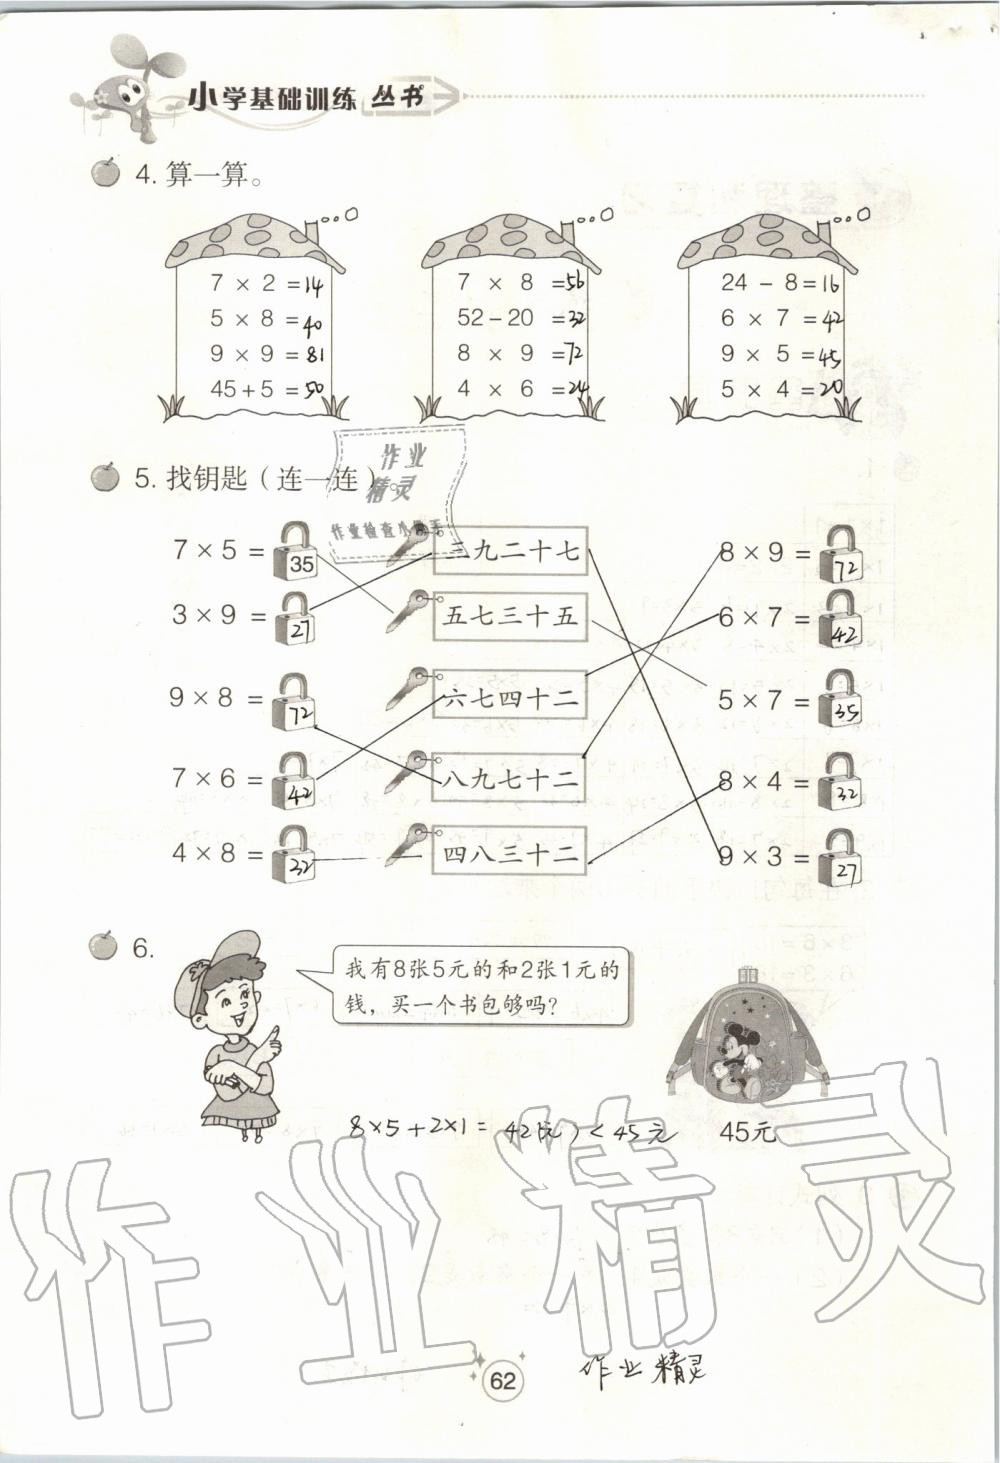 小学基础训练 丛书
4. 算一算。
7 × 2 = 14
5 × 8 = 40
9 × 9 = 81
45 + 5 = 50
7 × 8 = 56
52 - 20 = 32
8 × 9 = 72
4 × 6 = 24
24 - 8 = 16
6 × 7 = 42
9 × 5 = 45
5 × 4 = 20
5. 找钥匙（连一连）。
作业
精灵
作业检查小帮手
7 × 5 = 35 三九二十七 8 × 9 = 72
3 × 9 = 27 五七三十五 6 × 7 = 42
9 × 8 = 72 六七四十二 5 × 7 = 35
7 × 6 = 42 八九七十二 8 × 4 = 32
4 × 8 = 32 四八三十二 9 × 3 = 27
6.
我有8张5元的和2张1元的
钱，买一个书包够吗？
8×5+2×1 = 42(元) < 45元 45元
作业精灵
62
作业精灵